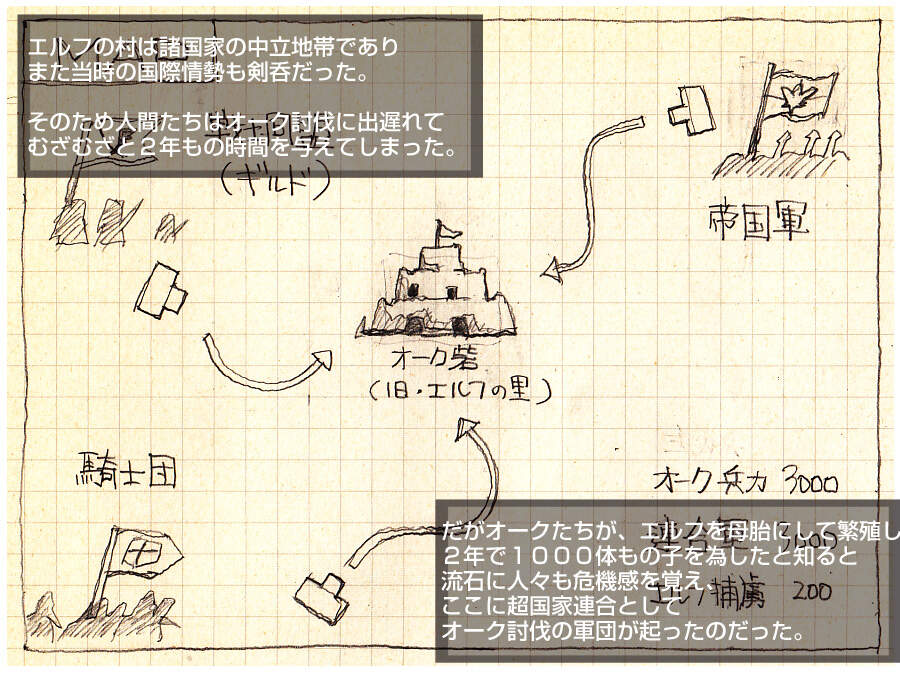 エルフの村は諸国家の中立地帯であり
また当時の国際情勢も剣呑だった。
そのため人間たちはオーク討伐に出遅れて
むざむざと２年もの時間を与えてしまった。
(ギルド)
帝国軍
オーク砦
(旧・エルフの里)
騎士団
オーク兵力 3000
連合軍 3000
エルフ捕虜 200
だがオークたちが、エルフを母胎にして繁殖し
２年で１０００体もの子を為したと知ると
流石に人々も危機感を覚え、
ここに超国家連合として
オーク討伐の軍団が起ったのだった。